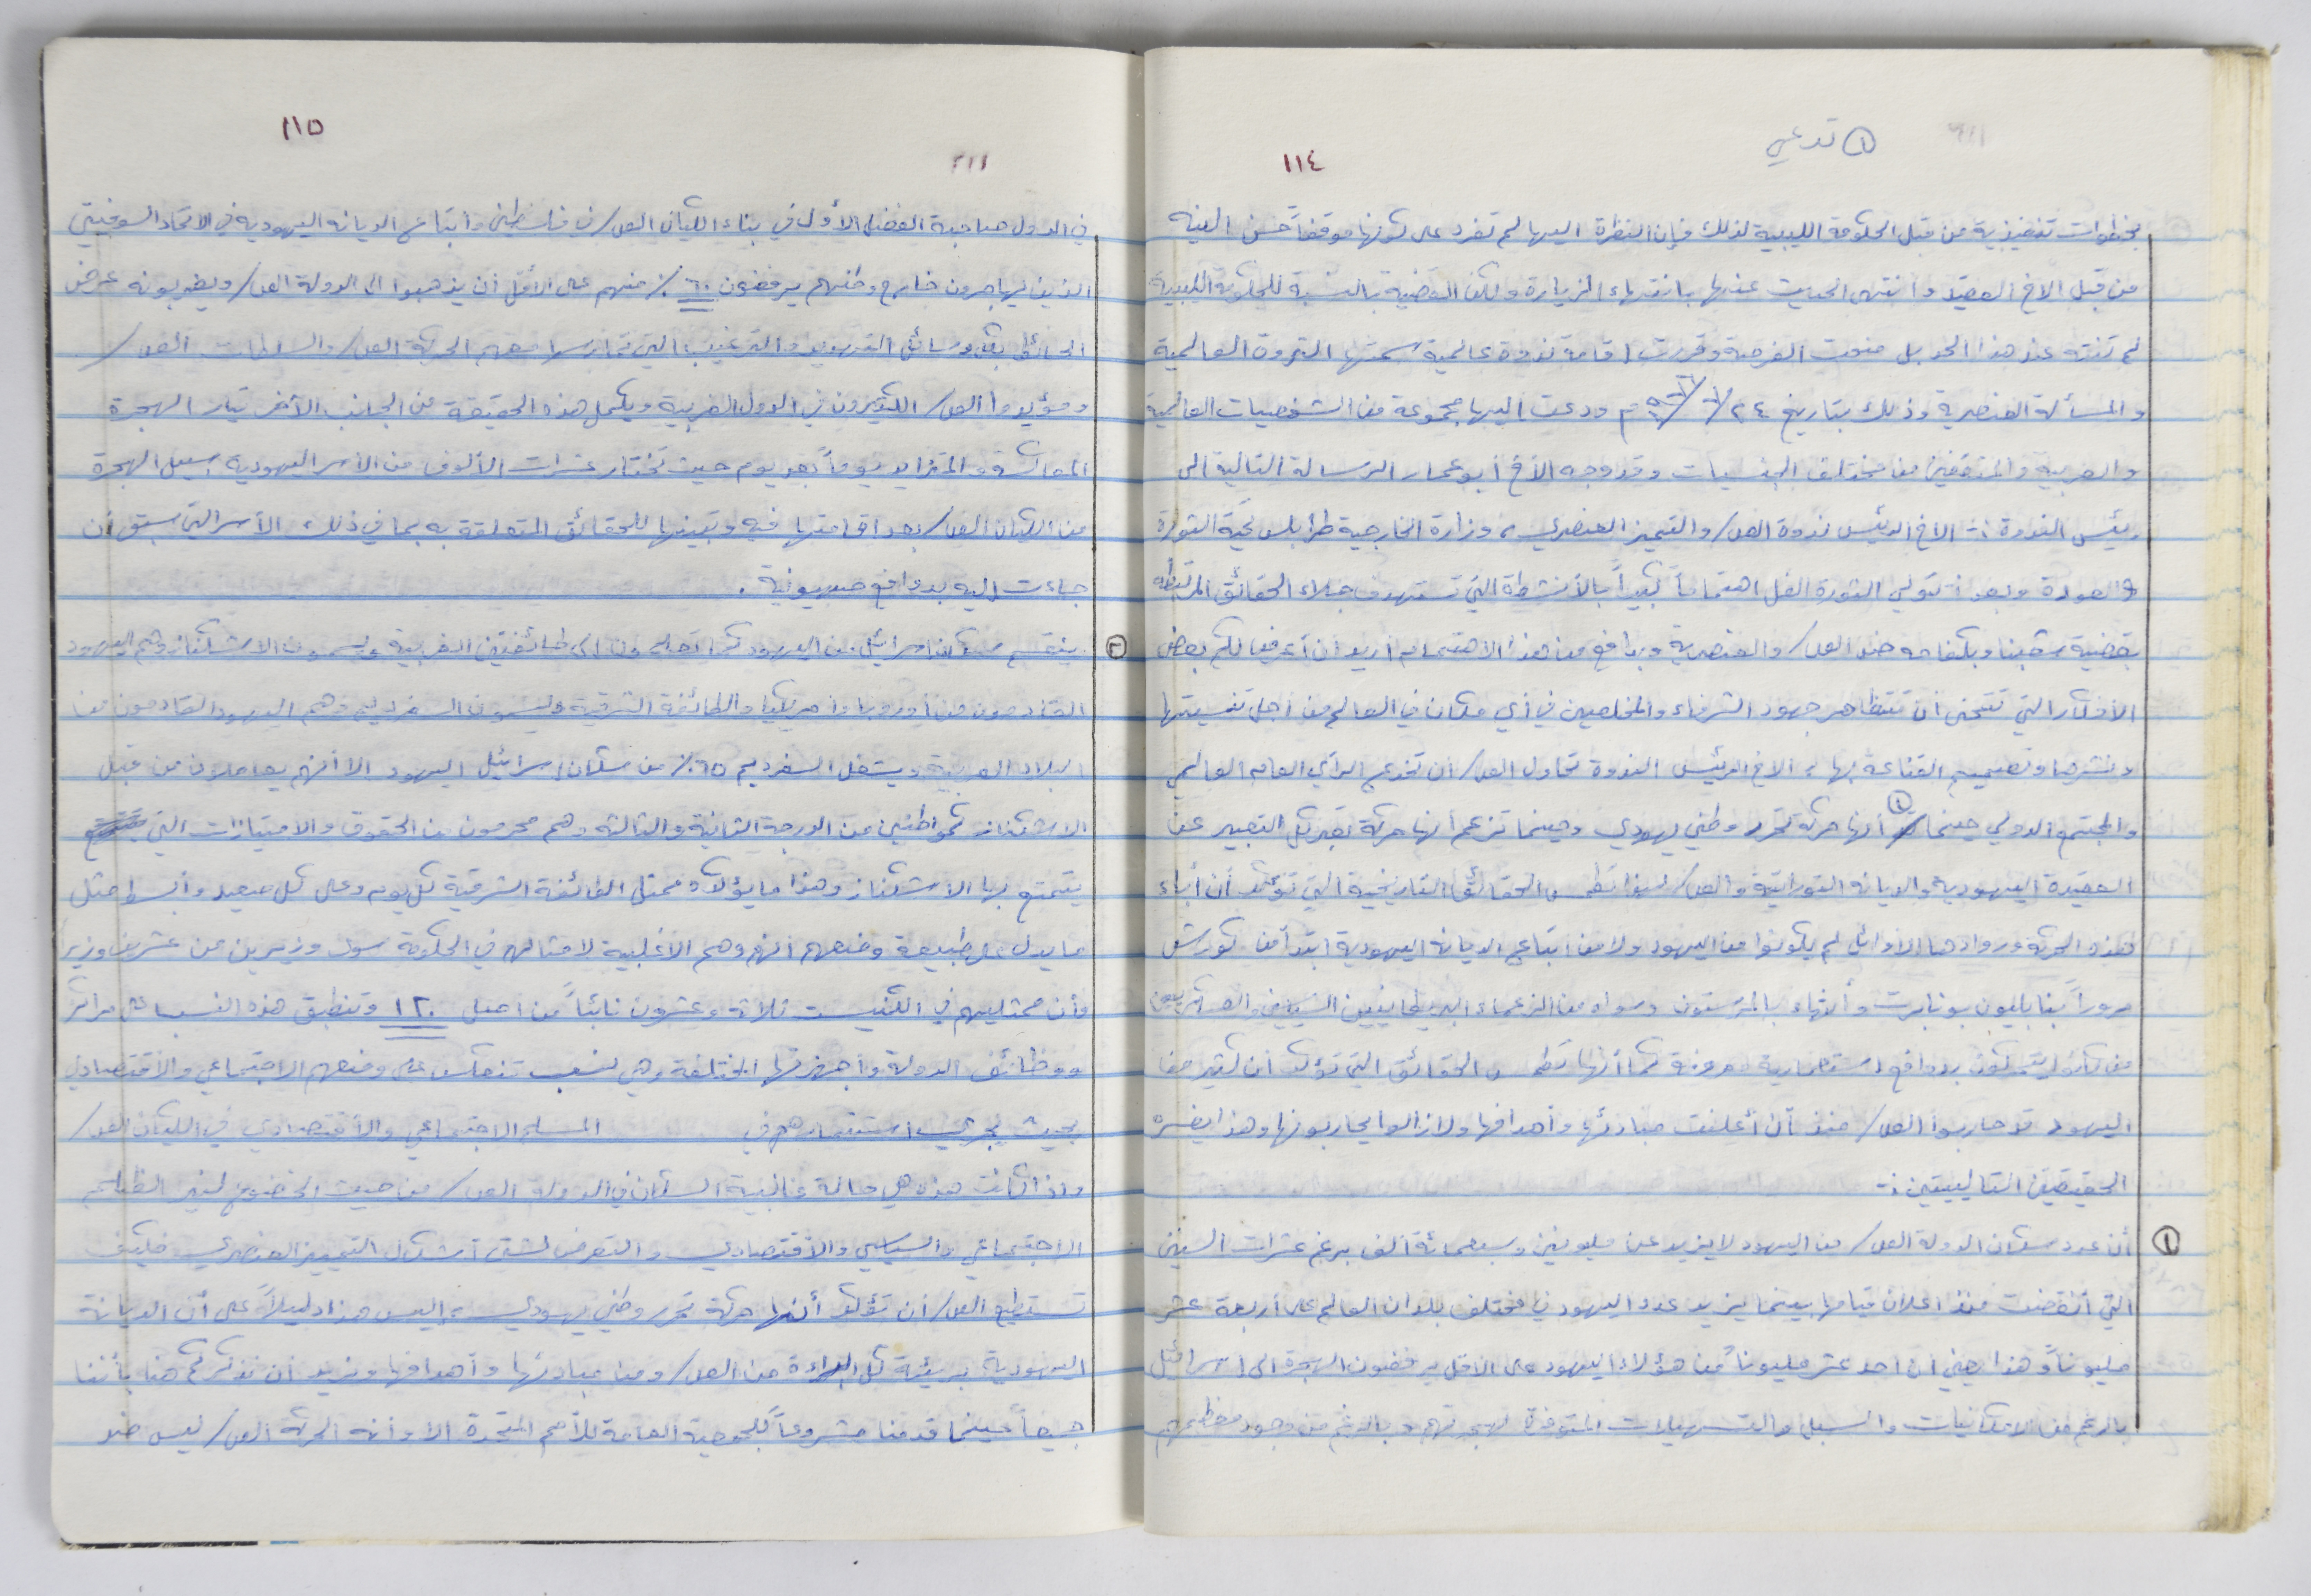 ① تدعي
١١٤
بخطوات تنفيذية من قبل الحكومة الليبية لذلك فإن النظرة اليها لم تفرد على كونها موقفاً حسن النيه
من قبل الاخ العقيد وانتهى الحديث عنها بانتهاء الزيارة ولكن القضية بالنسبة للحكومة الليبية
لم تنته عند هذا الحد بل منحت الفرصة وقررت إقامة ندوة عالمية سمتها الندوة العالمية
والمسألة العنصرية وذلك بتاريخ ٢٤/٧/٧٦م ودعت اليها مجموعة من الشخصيات العالمية
والعربية والمثقفين من مختلف الجنسيات وقد وجه الأخ أبو عمار الرسالة التالية الى
رئيس الندوة :- الاخ الرئيس ندوة الص/ والتميز العنصري ، وزارة الخارجية طرابلس تحية الثورة
والعودة وبعد ، تولي الثورة الفل اهتماماً كبيراً بالأنشطة التي تستهدف جلاء الحقائق المرتبطه
بقضية شعبنا وبكفاحه ضد الص/ والعنصرية وبدافع من هذا الاهتمام أريد أن أعرض لكم بعض
الأفكار التي نتمنى أن تتظاهر جهود الشرفاء والمخلصين في أي مكان في العالم من أجل تنميتها
ونشرها وتعميم القناعة بها ، الاخ الرئيس الندوة تحاول الص/ ان تخدع الرأي العام العالمي
والمجتمع الدولي حينما ① أنها حركة تحرر وطني يهودي وحينما تزعم أنها حركة تعبر كل التعبير عن
العقيدة اليهودية والديانه التوراتية والص/ لهذا تطمس الحقائق التاريخية التي تؤكد أن أباء
هذه الحركة وروادها الأوائل لم يكونوا من اليهود ولا من اتباع الديانه اليهودية ابتدأ من كورتش
مروراً بنابليون بونابرت وأنتهاء بالمرستون وسواه من الزعماء البريطانيين السياسيين والعسكريين
ممن كانوا يتحركون بدوافع استعمارية معروفة كما أنها تطمس الحقائق التي تؤكد أن كثير من
اليهود قد حاربوا الص/ منذ أن أعلنت مبادئها وأهدافها ولازالوا يحاربونها وهذا يفسره
الحقيقتين التاليتين :-
① أن عدد سكان الدولة الص/ من اليهود لا يزيد عن مليونين وسبعمائة ألف برغم عشرات السنين
التي أنقضت منذ اعلان قيامها بينما يزيد عدد اليهود في مختلف بلدان العالم على أربعة عشر
مليوناً وهذا يعني أن احد عشر مليوناً من هؤلاء اليهود على الاقل يرفضون الهجرة الى إسرائيل
بالرغم من الامكانيات والسبل والتسهيلات المتوفرة لهجرتهم وبالرغم من وجود معظمهم
١١٥
في الدول صاحبة الفضل الأول في بناء الكيان الص/ في فلسطين وأتباع الديانه اليهودية في الاتحاد السوفيتي
الذين يهاجرون خارج وطنهم يرفضون ٦٠٪ منهم على الأقل أن يذهبوا الى الدولة الص/ ويضربونه عرض
الحائط بكل وسائل التهديد والترغيب التي تمارسها معهم الحركة الص/ والسلطات الص/
ومؤيدوا الص/ الكثيرون في الدول الغربية ويكمل هذه الحقيقة من الجانب الأخر تيار الهجرة
المعاكسة والمتزايد يوماً بعد يوم حيث تختار عشرات الألوف من الأسر اليهودية سبيل الهجرة
من الكيان الص/ بعد اقامتها فيه وتبينها للحقائق المتعلقة به بما في ذلك الأسر التي سبق أن
جاءت إليه بدوافع صهيونية .
② ينقسم سكان اسرائيل من اليهود كما تعلمون الى طائفتين الغربية ويسمون الاشكناز وهم اليهود
القادمون من أوروبا وأمريكا والطائفة الشرقية ويسمون السفرديم وهم اليهود القادمون من
البلاد العربية ويشغل السفرديم ٦٥٪ من سكان إسرائيل اليهود الا أنهم يعاملون من قبل
الاشكناز كمواطنين من الدرجة الثانية والثالثة وهم محرمون من الحقوق والامتيازات التي
يتمتع بها الاشكناز وهذا ما يؤكده ممثل الطائفة الشرقية كل يوم وعلى كل صعيد وأبسط مثل
ما يدل على طبيعة وضعهم انهم وهم الأغلبية لا مثال لهم في الحكومة سوى وزيرين من عشرين وزير
وأن ممثليهم في الكنيست ثلاثة وعشرون نائباً من أصل ١٢٠ وتنطبق هذه النسب على مراكز
ووظائف الدولة وأجهزتها المختلفة وهي نسب تنعكس على وضعهم الاجتماعي والأقتصادي
بحيث يجري استثمارهم في المسلم الاجتماعي والأقتصادي في الكيان الص/
واذا كانت هذه هي حالة غالبية السكان في الدولة الص/ من حيث الخضوع لنير الظلم
الاجتماعي والسياسي والأقتصادي والتعرض لشتى أشكال التمييز العنصري فكيف
تستطيع الص/ أن تؤكد أنها حركة تحرر وطني يهودي ، اليس هذا دليلاً على أن الديانة
اليهودية بريئة كل البراءة من الص/ ومن مبادئها وأهدافها ونريد أن نذكركم هنا بأننا
جميعاً حينما قدمنا مشروعاً للجمعية العامة للأمم المتحدة الادانه الحركة الص/ ليس ضد